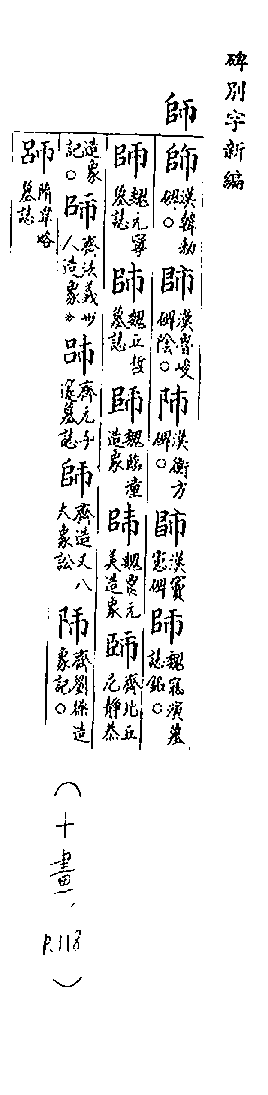 碑別字新編
師
師 漢韓勑碑。○ 師 漢曹 碑陰○ 師 漢衡方碑○ 師 漢竇憲碑 師 魏寇演墓誌銘○
師 魏元寧墓誌 師 魏丘哲墓誌 師 魏臨潼造象 師 魏賈元美造象 師 齊北丘尼靜恭
造象記○ 師 齊法義卅人造象※ 師 齊元子邃墓誌 師 齊造丈八大象訟 師 齊劉 造象記○
師 隋韋略墓誌
(十畫, P.118)